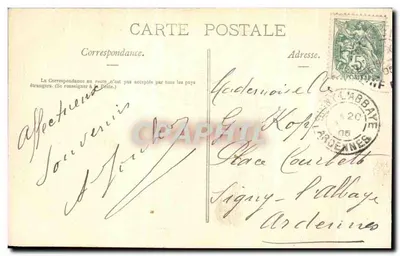 CARTE POSTALE
Correspondance.
Adresse.
La Correspondance au recto n'est pas acceptée par tous les pays
étrangers. (Se renseigner à la Poste.)
Affectueux
Souvenirs
A
Mademoiselle
Place
Signy-l'Abbaye
Ardennes
5
L'ABBAYE
20
05
ARDENNES
CPARAMA